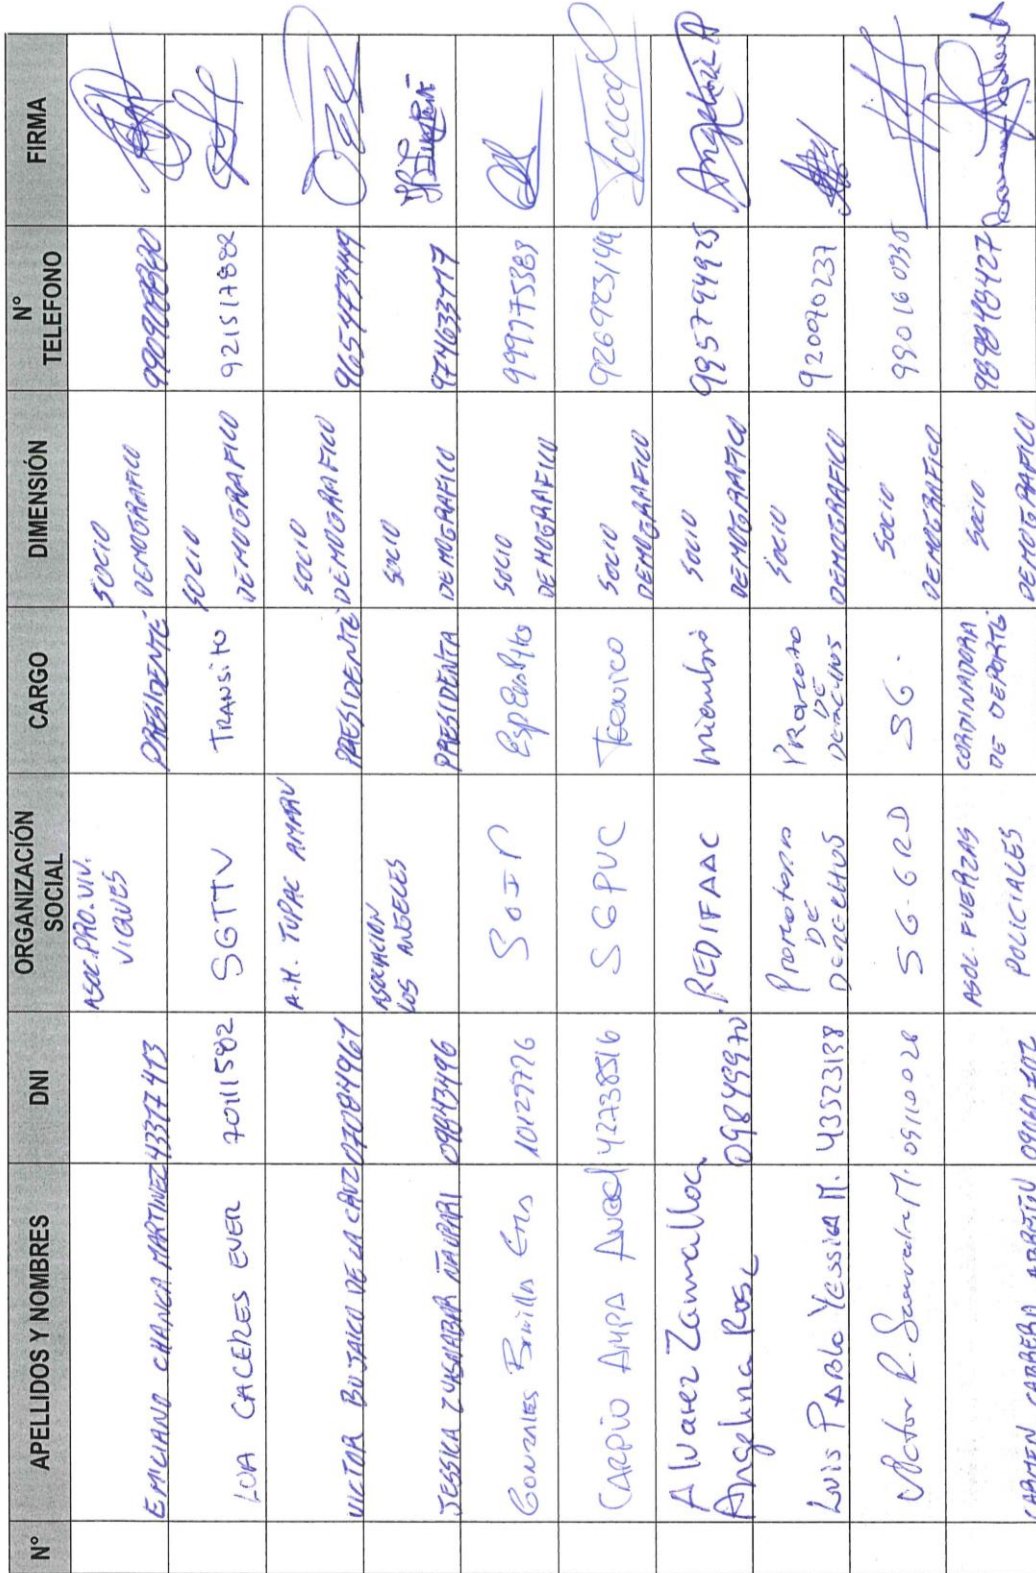 N° APELLIDOS Y NOMBRES DNI ORGANIZACIÓN SOCIAL CARGO DIMENSIÓN N° TELEFONO FIRMA
EMICIANO CHANCA MARTINEZ 43317413 ASOC. PRO. VIV. VIQUES PRESIDENTE SOCIO DEMOGRAFICO
LOA CACERES EVER 70111582 SGTTV TRANSITO SOCIO DEMOGRAFICO 921517882
VICTOR BUJAICO DE LA CRUZ A.H. TUPAC AMARU PRESIDENTE SOCIO DEMOGRAFICO 965473449
JESSICA ÑAUPARI 09843496 ASOCIACIÓN LOS ANGELES PRESIDENTA SOCIO DEMOGRAFICO 974633417
GONZALES 10129776 SOCIO DEMOGRAFICO 999775383
CARPIO AMPA ANGEL 42738516 SGPUC Tecnico SOCIO DEMOGRAFICO 926923144
Alvarez Zamalloa Angelina Rosa 09849970 REDIFAAC miembro SOCIO DEMOGRAFICO 995794925 Angelina A
Luis PABlo Yessica M. 43523138 Promotoras DE DERECHOS SOCIO DEMOGRAFICO 920090237
Victor R. Saavedra M. 09110028 SG-GRD SG. SOCIO DEMOGRAFICO 990160935
CARMEN CABRERA ASOC. FUERZAS POLICIALES CORDINADORA DE DEPORTE SOCIO DEMOGRAFICO 989848427